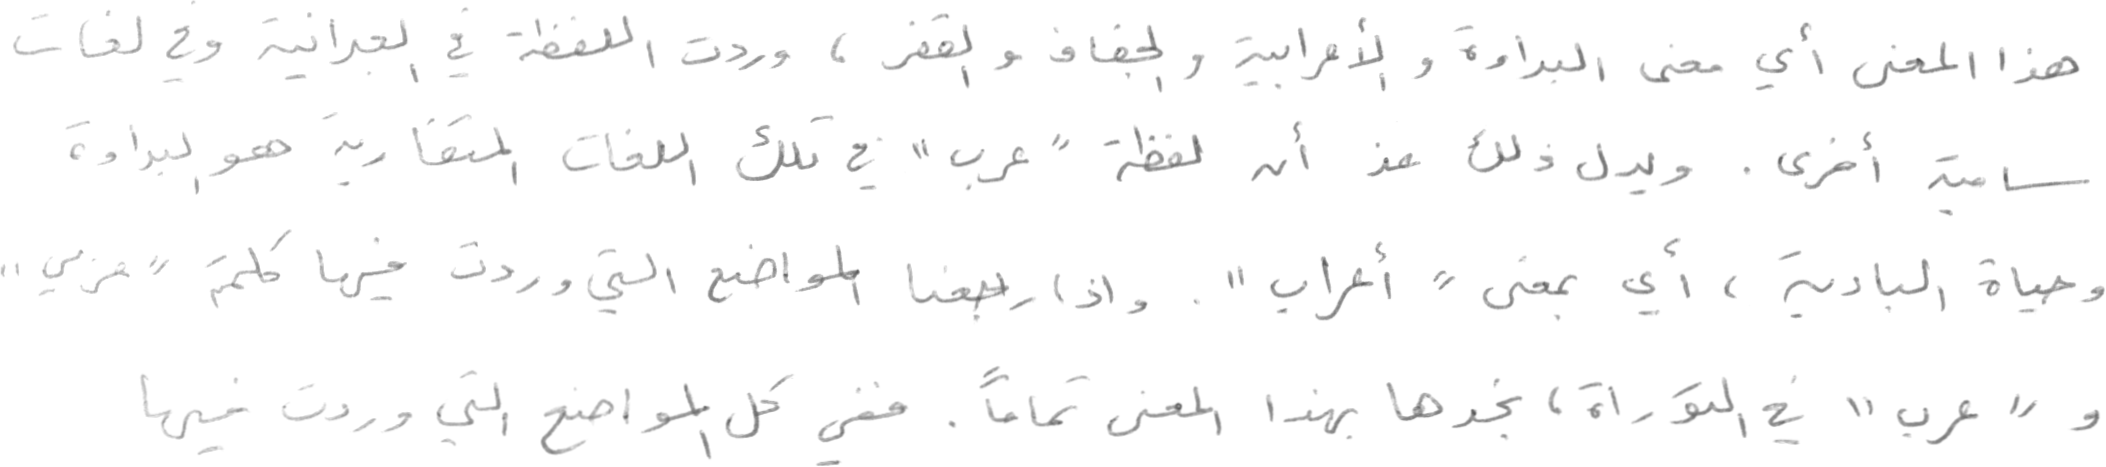 هذا المعنى أي معنى البداوة و الأعرابية و الجفاف و القفر ، وردت اللفظة في العبرانية وفي لغات
سامية أخرى . ويدل ذلك عند أن لفظة "عرب" في تلك اللغات المتقاربة هو البداوة
وحياة البادية ، أي بمعنى "أعراب" . واذا رجعنا المواضع التي وردت فيها كلمة "عربي"
و "عرب" في التوراة ، نجدها بهذا المعنى تماماً . ففي كل المواضع التي وردت فيها